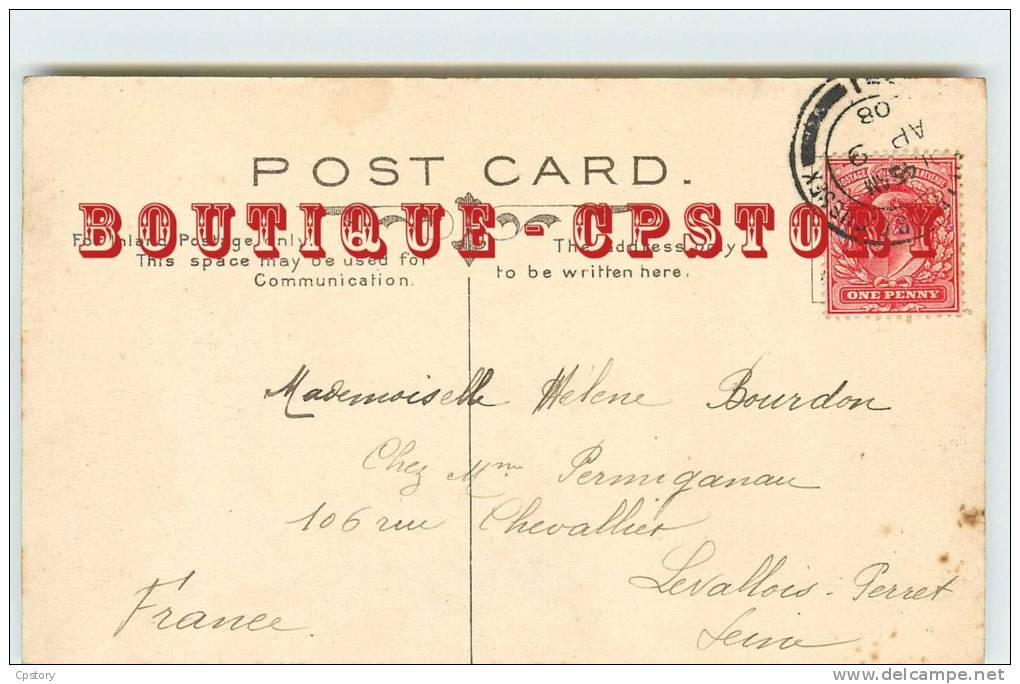 POST CARD.
BOUTIQUE - CPSTORY
For Inland Postage only
This space may be used for
Communication.
The Address only
to be written here.
POSTAGE REVENUE
ONE PENNY
AP
08
Mademoiselle Hélène Bourdon
Chez Mme
106 rue Chevallier
Levallois-Perret
Seine
France
Cpstory
www.delcampe.net